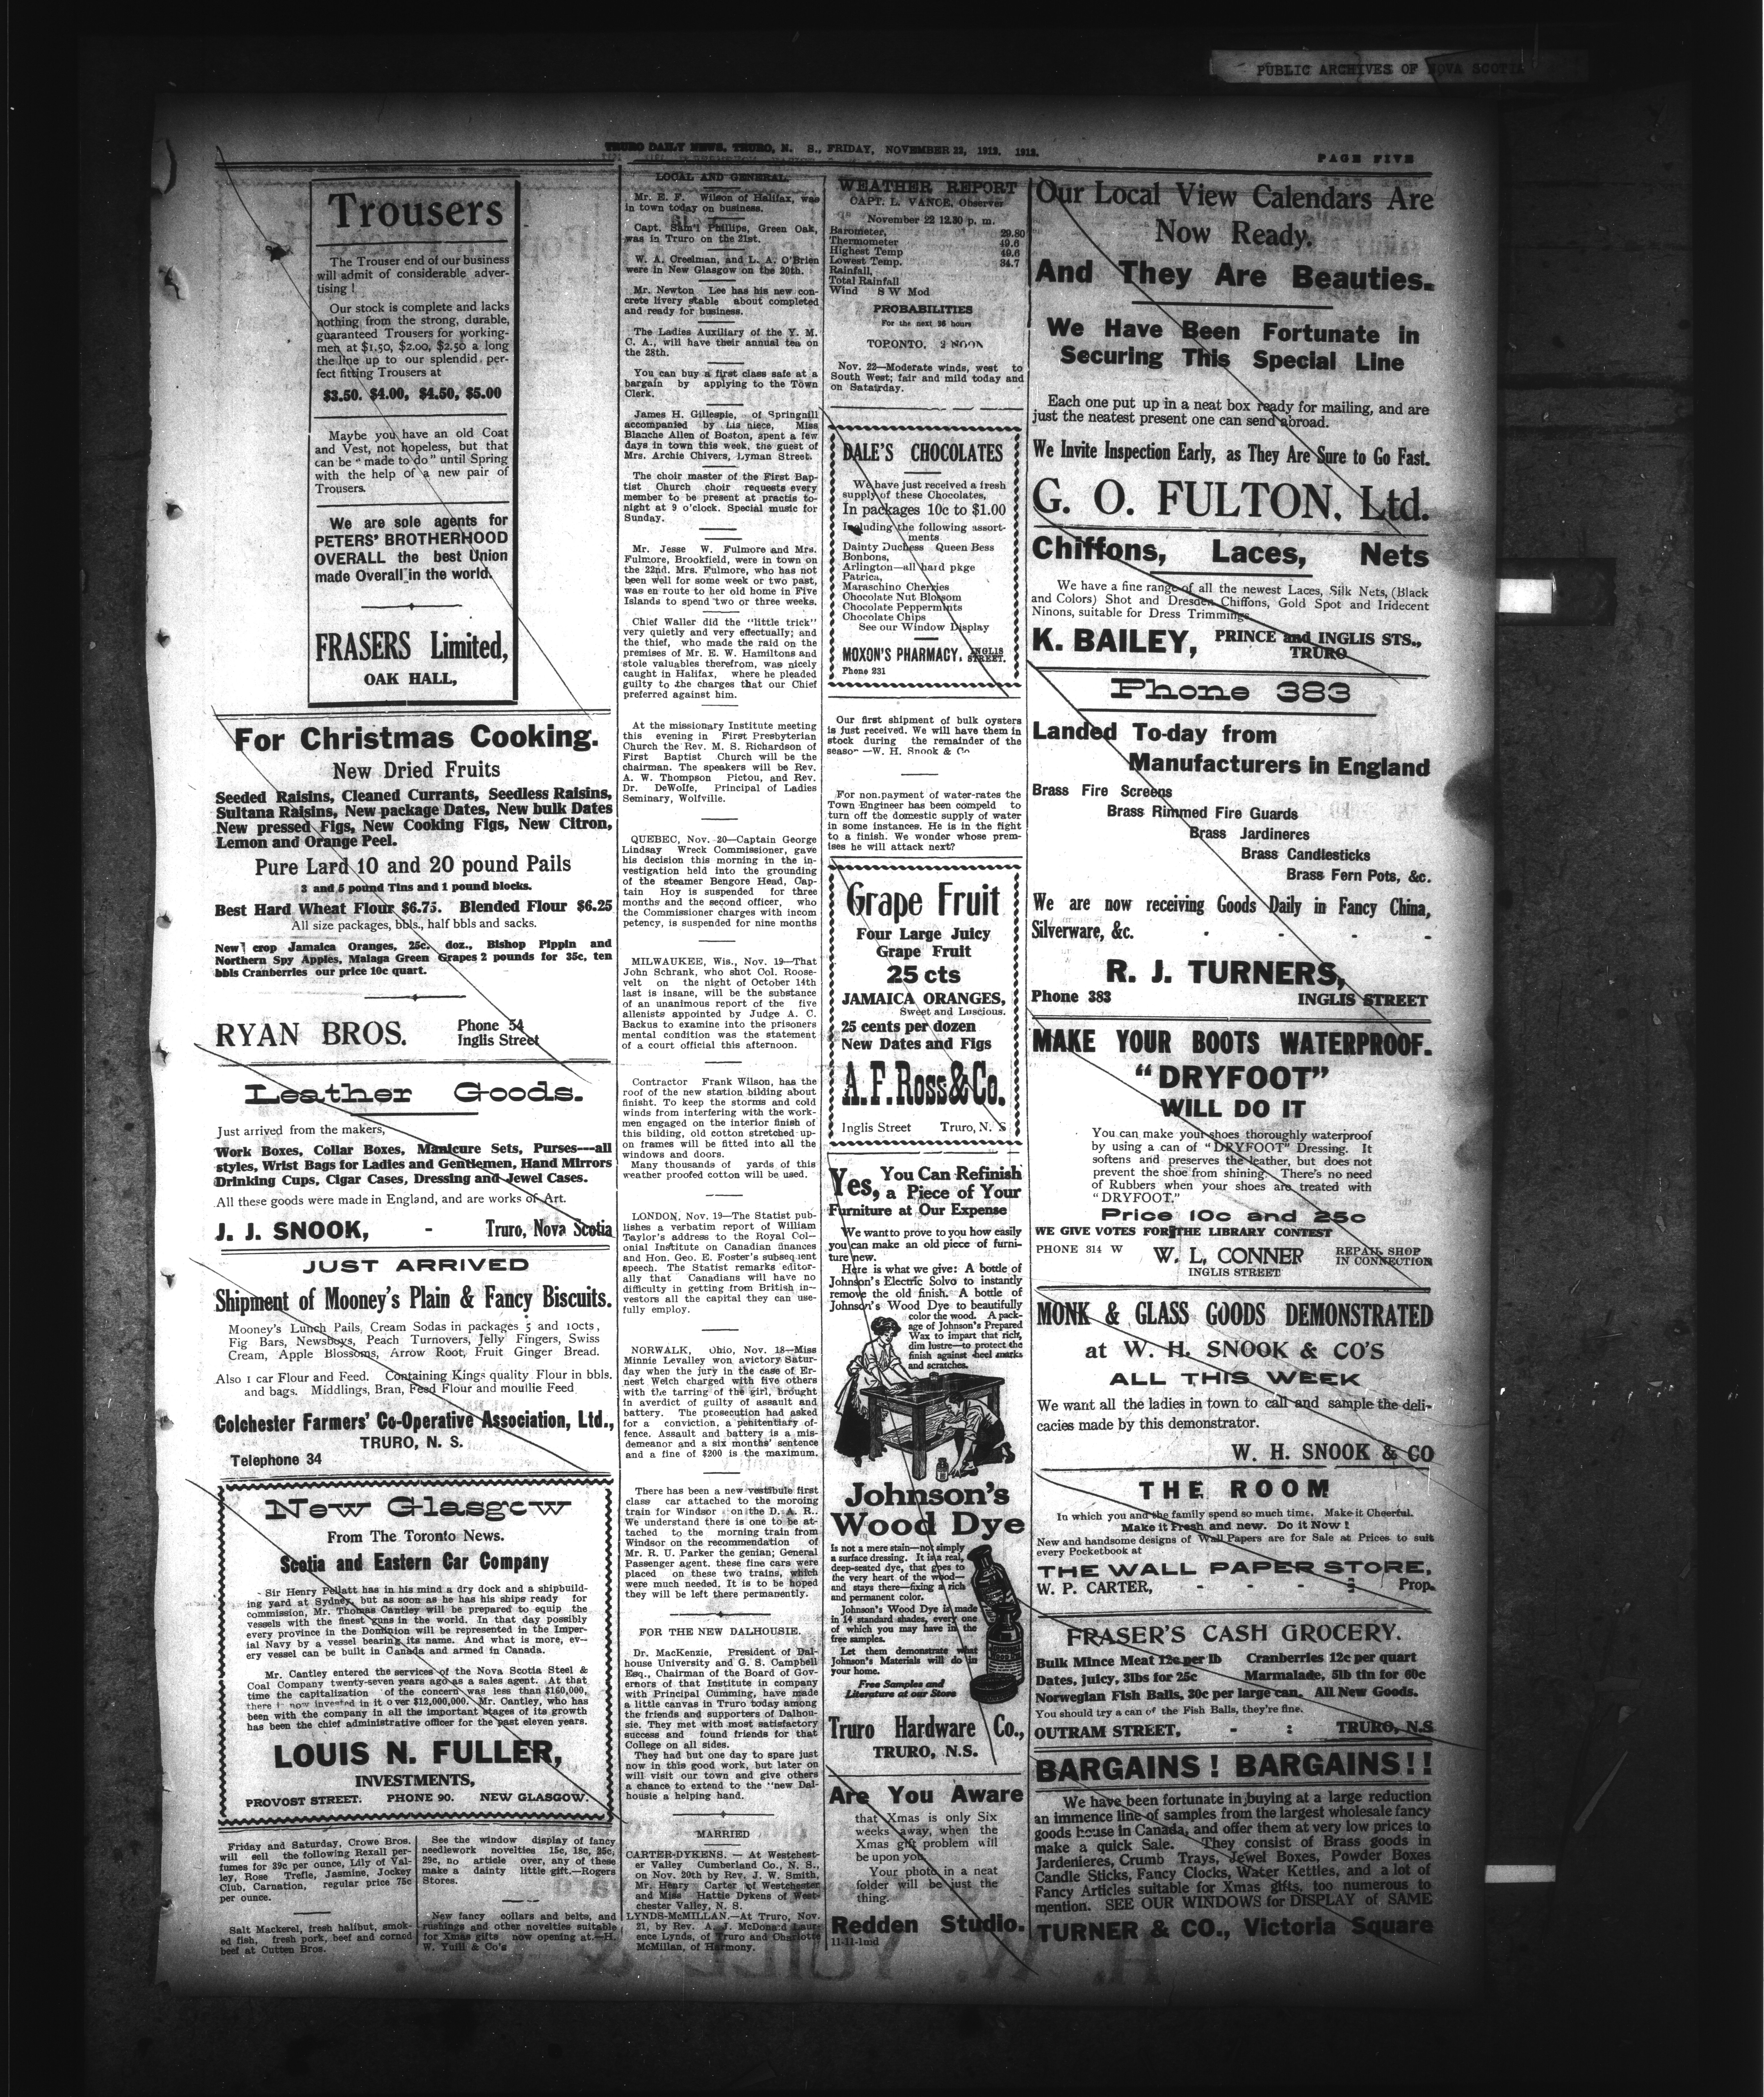 PUBLIC ARCHIVES OF NOVA SCOTIA
TRURO DAILY NEWS, TRURO, N. S., FRIDAY, NOVEMBER 22, 1912. 1912.
PAGE FIVE
Trousers
The Trouser end of our business
will admit of considerable adver-
tising !
Our stock is complete and lacks
nothing from the strong, durable,
guaranteed Trousers for working-
men at $1.50, $2.00, $2.50 a long
the line up to our splendid, per-
fect fitting Trousers at
$3.50. $4.00, $4.50, $5.00
Maybe you have an old Coat
and Vest, not hopeless, but that
can be "made to do" until Spring
with the help of a new pair of
Trousers.
We are sole agents for
PETERS' BROTHERHOOD
OVERALL the best Union
made Overall in the world.
FRASERS Limited,
OAK HALL,
For Christmas Cooking.
New Dried Fruits
Seeded Raisins, Cleaned Currants, Seedless Raisins,
Sultana Raisins, New package Dates, New bulk Dates
New pressed Figs, New Cooking Figs, New Citron,
Lemon and Orange Peel.
Pure Lard 10 and 20 pound Pails
3 and 5 pound Tins and 1 pound blocks.
Best Hard Wheat Flour $6.75. Blended Flour $6.25
All size packages, bbls., half bbls and sacks.
New crop Jamaica Oranges, 25c. doz., Bishop Pippin and
Northern Spy Apples, Malaga Green Grapes 2 pounds for 35c, ten
bbls Cranberries our price 10c quart.
RYAN BROS.
Phone 54
Inglis Street
Leather Goods.
Just arrived from the makers,
Work Boxes, Collar Boxes, Manicure Sets, Purses---all
styles, Wrist Bags for Ladies and Gentlemen, Hand Mirrors
Drinking Cups, Cigar Cases, Dressing and Jewel Cases.
All these goods were made in England, and are works of Art.
J. J. SNOOK, - Truro, Nova Scotia
JUST ARRIVED
Shipment of Mooney's Plain & Fancy Biscuits.
Mooney's Lunch Pails, Cream Sodas in packages 5 and 10cts,
Fig Bars, Newsboys, Peach Turnovers, Jelly Fingers, Swiss
Cream, Apple Blossoms, Arrow Root, Fruit Ginger Bread.
Also 1 car Flour and Feed. Containing Kings quality Flour in bbls.
and bags. Middlings, Bran, Feed Flour and moullie Feed
Colchester Farmers' Co-Operative Association, Ltd.,
TRURO, N. S.
Telephone 34
New Glasgow
From The Toronto News.
Scotia and Eastern Car Company
Sir Henry Pellatt has in his mind a dry dock and a shipbuild-
ing yard at Sydney, but as soon as he has his ships ready for
commission, Mr. Thomas Cantley will be prepared to equip the
vessels with the finest guns in the world. In that day possibly
every province in the Dominion will be represented in the Imper-
ial Navy by a vessel bearing its name. And what is more, ev-
ery vessel can be built in Canada and armed in Canada.
Mr. Cantley entered the services of the Nova Scotia Steel &
Coal Company twenty-seven years ago as a sales agent. At that
time the capitalization of the concern was less than $160,000,
there is now invested in it over $12,000,000. Mr. Cantley, who has
been with the company in all the important stages of its growth
has been the chief administrative officer for the past eleven years.
LOUIS N. FULLER,
INVESTMENTS,
PROVOST STREET. PHONE 90. NEW GLASGOW.
Friday and Saturday, Crowe Bros.
will sell the following Rexall per-
fumes for 39c per ounce, Lily of Val-
ley, Rose Trefle, Jasmine, Jockey
Club, Carnation, regular price 75c
per ounce.
Salt Mackerel, fresh halibut, smok-
ed fish, fresh pork, beef and corned
beef at Cutten Bros.
See the window display of fancy
needlework novelties 15c, 18c, 25c,
29c, no article over, any of these
make a dainty little gift.—Rogers
Stores.
New fancy collars and belts, and
rushings and other novelties suitable
for Xmas gifts now opening at.—H.
W. Yuill & Co's
LOCAL AND GENERAL.
Mr. E. F. Wilson of Halifax, was
in town today on business.
Capt. Sam'l Phillips, Green Oak,
was in Truro on the 21st.
W. A. Creelman, and L. A. O'Brien
were in New Glasgow on the 20th.
Mr. Newton Lee has his new con-
crete livery stable about completed
and ready for business.
The Ladies Auxiliary of the Y. M.
C. A., will have their annual tea on
the 28th.
You can buy a first class safe at a
bargain by applying to the Town
Clerk.
James H. Gillespie, of Springhill
accompanied by his niece, Miss
Blanche Allen of Boston, spent a few
days in town this week, the guest of
Mrs. Archie Chivers, Lyman Street.
The choir master of the First Bap-
tist Church choir requests every
member to be present at practis to-
night at 9 o'clock. Special music for
Sunday.
Mr. Jesse W. Fulmore and Mrs.
Fulmore, Brookfield, were in town on
the 22nd. Mrs. Fulmore, who has not
been well for some week or two past,
was en route to her old home in Five
Islands to spend two or three weeks.
Chief Waller did the "little trick"
very quietly and very effectually; and
the thief, who made the raid on the
premises of Mr. E. W. Hamiltons and
stole valuables therefrom, was nicely
caught in Halifax, where he pleaded
guilty to the charges that our Chief
preferred against him.
At the missionary Institute meeting
this evening in First Presbyterian
Church the Rev. M. S. Richardson of
First Baptist Church will be the
chairman. The speakers will be Rev.
A. W. Thompson Pictou, and Rev.
Dr. DeWolfe, Principal of Ladies
Seminary, Wolfville.
QUEBEC, Nov. 20—Captain George
Lindsay Wreck Commissioner, gave
his decision this morning in the in-
vestigation held into the grounding
of the steamer Bengore Head, Cap-
tain Hoy is suspended for three
months and the second officer, who
the Commissioner charges with incom
petency, is suspended for nine months
MILWAUKEE, Wis., Nov. 19—That
John Schrank, who shot Col. Roose-
velt on the night of October 14th
last is insane, will be the substance
of an unanimous report of the five
allenists appointed by Judge A. C.
Backus to examine into the prisoners
mental condition was the statement
of a court official this afternoon.
Contractor Frank Wilson, has the
roof of the new station bilding about
finisht. To keep the storms and cold
winds from interfering with the work-
men engaged on the interior finish of
this bilding, old cotton stretched up-
on frames will be fitted into all the
windows and doors.
Many thousands of yards of this
weather proofed cotton will be used.
LONDON, Nov. 19—The Statist pub-
lishes a verbatim report of William
Taylor's address to the Royal Col-
onial Institute on Canadian finances
and Hon. Geo. E. Foster's subsequent
speech. The Statist remarks editor-
ally that Canadians will have no
difficulty in getting from British in-
vestors all the capital they can use-
fully employ.
NORWALK, Ohio, Nov. 18—Miss
Minnie Levalley won avictory Satur-
day when the jury in the case of Er-
nest Welch charged with five others
with the tarring of the girl, brought
in averdict of guilty of assault and
battery. The prosecution had asked
for a conviction, a penitentiary of-
fence. Assault and battery is a mis-
demeanor and a six months' sentence
and a fine of $200 is the maximum.
There has been a new vestibule first
class car attached to the moroing
train for Windsor on the D. A. R..
We understand there is one to be at-
tached to the morning train from
Windsor on the recommendation of
Mr. R. U. Parker the genian; General
Passenger agent. these fine cars were
placed on these two trains, which
were much needed. It is to be hoped
they will be left there permanently.
FOR THE NEW DALHOUSIE.
Dr. MacKenzie, President of Dal-
house University and G. S. Campbell
Esq., Chairman of the Board of Gov-
ernors of that Institute in company
with Principal Cumming, have made
a little canvas in Truro today among
the friends and supporters of Dalhou-
sie. They met with most satisfactory
success and found friends for that
College on all sides.
They had but one day to spare just
now in this good work, but later on
will visit our town and give others
a chance to extend to the "new Dal-
housie a helping hand.
MARRIED
CARTER-DYKENS. — At Westchest-
er Valley Cumberland Co., N. S.,
on Nov. 20th by Rev. J. W. Smith,
Mr. Henry Carter of Westchester
and Miss Hattie Dykens of West-
chester Valley, N. S.
LYNDS-McMILLAN.—At Truro, Nov.
21, by Rev. A. J. McDonald Laur-
ence Lynds, of Truro and Charlotte
McMillan, of Harmony.
WEATHER REPORT
CAPT. L. VANCE, Observer
November 22 12.30 p. m.
Barometer, 29.80
Thermometer 49.6
Highest Temp 49.6
Lowest Temp. 34.7
Rainfall,
Total Rainfall
Wind S W Mod
PROBABILITIES
For the next 36 hours
TORONTO, 2 NOON
Nov. 22—Moderate winds, west to
South West; fair and mild today and
on Satairday.
DALE'S CHOCOLATES
We have just received a fresh
supply of these Chocolates,
In packages 10c to $1.00
Including the following assort-
ments
Dainty Duchess Queen Bess
Bonbons,
Arlington—all hard pkge
Patrica,
Maraschino Cherries
Chocolate Nut Blossom
Chocolate Peppermints
Chocolate Chips
See our Window Display
MOXON'S PHARMACY, INGLIS STREET.
Phone 231
Our first shipment of bulk oysters
is just received. We will have them in
stock during the remainder of the
season —W. H. Snook & Co
For non.payment of water-rates the
Town Engineer has been compeld to
turn off the domestic supply of water
in some instances. He is in the fight
to a finish. We wonder whose prem-
ises he will attack next?
Grape Fruit
Four Large Juicy
Grape Fruit
25 cts
JAMAICA ORANGES,
Sweet and Luscious.
25 cents per dozen
New Dates and Figs
A. F. Ross & Co.
Inglis Street Truro, N. S
Yes, You Can Refinish
a Piece of Your
Furniture at Our Expense
We want to prove to you how easily
you can make an old piece of furni-
ture new.
Here is what we give: A bottle of
Johnson's Electric Solvo to instantly
remove the old finish. A bottle of
Johnson's Wood Dye to beautifully
color the wood. A pack-
age of Johnson's Prepared
Wax to impart that rich,
dim lustre—to protect the
finish against heel marks
and scratches.
Johnson's
Wood Dye
Is not a mere stain—not simply
a surface dressing. It is a real,
deep-seated dye, that goes to
the very heart of the wood—
and stays there—fixing a rich
and permanent color.
Johnson's Wood Dye is made
in 14 standard shades, every one
of which you may have in the
free samples.
Let them demonstrate what
Johnson's Materials will do in
your home.
Free Samples and
Literature at our Store
Truro Hardware Co.,
TRURO, N.S.
Are You Aware
that Xmas is only Six
weeks away, when the
Xmas gift problem will
be upon you
Your photo in a neat
folder will be just the
thing.
Redden Studio.
11-11-1md
Our Local View Calendars Are
Now Ready.
And They Are Beauties.
We Have Been Fortunate in
Securing This Special Line
Each one put up in a neat box ready for mailing, and are
just the neatest present one can send abroad.
We Invite Inspection Early, as They Are Sure to Go Fast.
G. O. FULTON, Ltd.
Chiffons, Laces, Nets
We have a fine range of all the newest Laces, Silk Nets, (Black
and Colors) Shot and Dresden Chiffons, Gold Spot and Iridecent
Ninons, suitable for Dress Trimmings
K. BAILEY, PRINCE and INGLIS STS.,
TRURO
Phone 383
Landed To-day from
Manufacturers in England
Brass Fire Screens
Brass Rimmed Fire Guards
Brass Jardineres
Brass Candlesticks
Brass Fern Pots, &c.
We are now receiving Goods Daily in Fancy China,
Silverware, &c. - - - -
R. J. TURNERS,
Phone 383 INGLIS STREET
MAKE YOUR BOOTS WATERPROOF.
"DRYFOOT"
WILL DO IT
You can make your shoes thoroughly waterproof
by using a can of "DRYFOOT" Dressing. It
softens and preserves the leather, but does not
prevent the shoe from shining. There's no need
of Rubbers when your shoes are treated with
"DRYFOOT."
Price 10c and 25c
WE GIVE VOTES FOR THE LIBRARY CONTEST
PHONE 314 W W. L. CONNER REPAIR SHOP
IN CONNECTION
INGLIS STREET
MONK & GLASS GOODS DEMONSTRATED
at W. H. SNOOK & CO'S
ALL THIS WEEK
We want all the ladies in town to call and sample the deli-
cacies made by this demonstrator.
W. H. SNOOK & CO
THE ROOM
In which you and the family spend so much time. Make it Cheerful.
Make it Fresh and new. Do it Now !
New and handsome designs of Wall Papers are for Sale at Prices to suit
every Pocketbook at
THE WALL PAPER STORE,
W. P. CARTER, - - - - Prop.
FRASER'S CASH GROCERY.
Bulk Mince Meat 12c per lb Cranberries 12c per quart
Dates, juicy, 3lbs for 25c Marmalade, 5lb tin for 60c
Norwegian Fish Balls, 30c per large can. All New Goods.
You should try a can of the Fish Balls, they're fine.
OUTRAM STREET, - : TRURO, N.S
BARGAINS ! BARGAINS ! !
We have been fortunate in buying at a large reduction
an immence line of samples from the largest wholesale fancy
goods house in Canada, and offer them at very low prices to
make a quick Sale. They consist of Brass goods in
Jardenieres, Crumb Trays, Jewel Boxes, Powder Boxes
Candle Sticks, Fancy Clocks, Water Kettles, and a lot of
Fancy Articles suitable for Xmas gifts, too numerous to
mention. SEE OUR WINDOWS for DISPLAY of SAME
TURNER & CO., Victoria Square